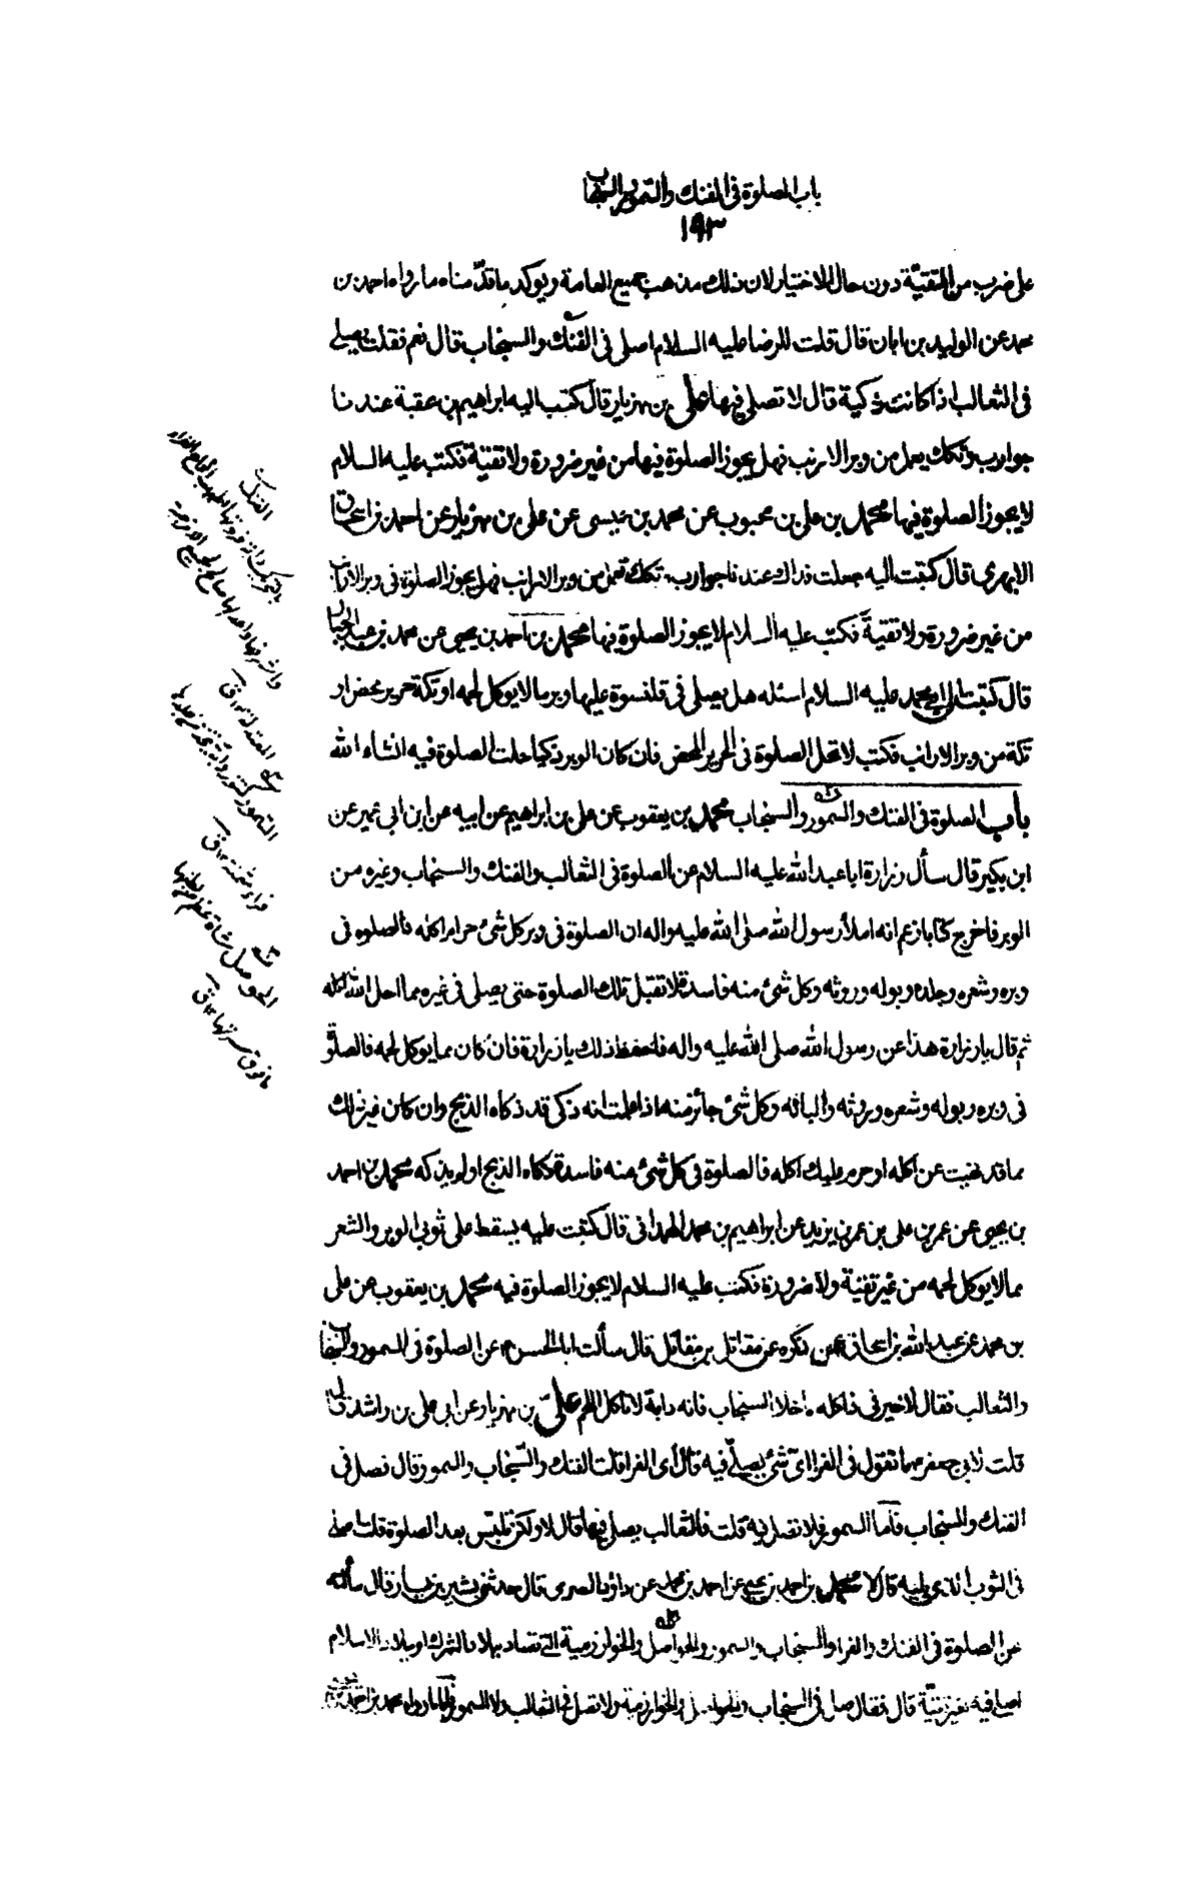 باب الصلوة فى الفنك والسمور والسنجاب
١٩٣
على ضرب من التقيّة دون حال الاختيار لان ذلك مذهب جميع العامة ويوكد ما قدّمناه ما رواه احمد بن
محمد عن الوليد بن ابان قال قلت للرضا عليه السلام اصلى فى الفنك والسنجاب قال نعم فقلت يصلى
فى الثعالب اذا كانت ذكية قال لا تصلى فيها على بن مهزيار قال كتب اليه ابراهيم بن عقبة عندنا
جوارب وتكك يعمل من وبر الارنب فهل يجوز الصلوة فيها من غير ضرورة ولا تقيّة فكتب عليه السلام
لا يجوز الصلوة فيها محمد بن على بن محبوب عن محمد بن عيسى عن على بن مهزيار عن احمد بن اسحاق
الابهرى قال كتبت اليه جعلت فداك عندنا جوارب وتكك تعمل من وبر الارانب فهل يجوز الصلوة فى وبر الارانب
من غير ضرورة ولا تقيّة فكتب عليه السلام لا يجوز الصلوة فيها محمد بن احمد بن يحيى عن محمد بن عبد الجبار
قال كتبت الى ابى محمد عليه السلام اسئله هل يصلى فى قلنسوة عليها وبر ما لا يوكل لحمه او تكة حرير محض او
تكة من وبر الارانب فكتب لا تحل الصلوة فى الحرير المحض فان كان الوبر ذكيا حلت الصلوة فيه انشاء الله
باب الصلوة فى الفنك والسمور والسنجاب محمد بن يعقوب عن على بن ابراهيم عن ابيه عن ابن ابى عمير عن
ابن بكير قال سأل زرارة ابا عبد الله عليه السلام عن الصلوة فى الثعالب والفنك والسنجاب وغيره من
الوبر فاخرج كتابا زعم انه املاء رسول الله صلى الله عليه واله ان الصلوة فى وبر كل شئ حرام اكله فالصلوة فى
وبره وشعره وجلده وبوله وروثه وكل شئ منه فاسدة لا تقبل تلك الصلوة حتى يصلى فى غيره مما احل الله اكله
ثم قال يا زرارة هذا عن رسول الله صلى الله عليه واله فاحفظ ذلك يا زرارة فان كان مما يوكل لحمه فالصلوة
فى وبره وبوله وشعره وروثه والبانه وكل شئ جائز منه اذا علمت انه ذكى قد ذكاه الذبح وان كان غير ذلك
مما قد نهيت عن اكله او حرم عليك اكله فالصلوة فى كل شئ منه فاسدة ذكاه الذبح او لم يذكه محمد بن احمد
بن يحيى عن عمر بن على بن عمر بن يزيد عن ابراهيم بن محمد الهمدانى قال كتبت اليه يسقط على ثوبى الوبر والشعر
مما لا يوكل لحمه من غير تقيّة ولا ضرورة فكتب عليه السلام لا يجوز الصلوة فيه محمد بن يعقوب عن على
بن محمد عن عبد الله بن اسحاق عمن ذكره عن مقاتل بن مقاتل قال سألت ابا الحسن ع عن الصلوة فى السمور والسنجاب
والثعالب فقال لا خير فى ذا كله ما خلا السنجاب فانه دابة لا تاكل اللحم على بن مهزيار عن ابى على بن راشد قال
قلت لابى جعفر ع ما تقول فى الفراء اىّ شئ يصلّى فيه قال اى الفراء قلت الفنك والسنجاب والسمور قال فصل فى
الفنك والسنجاب فأما السمور فلا تصل فيه قلت فالثعالب يصلى فيها قال لا ولكن تلبس بعد الصلوة قلت اصلى
فى الثوب الذى يليه قال لا محمد بن احمد بن يحيى عن احمد بن محمد عن داود الصرمى قال حدثنى بشير بن بشار قال سألته
عن الصلوة فى الفنك والفراء والسنجاب والسمور والحواصل والخوارزمية التى تصاد ببلاد الشرك او بلاد الاسلام
اصلى فيه بغير تقيّة قال فقال صل فى السنجاب والحواصل والخوارزمية ولا تصل فى الثعالب ولا السمور فاما ما رواه محمد بن احمد بن
الفنك